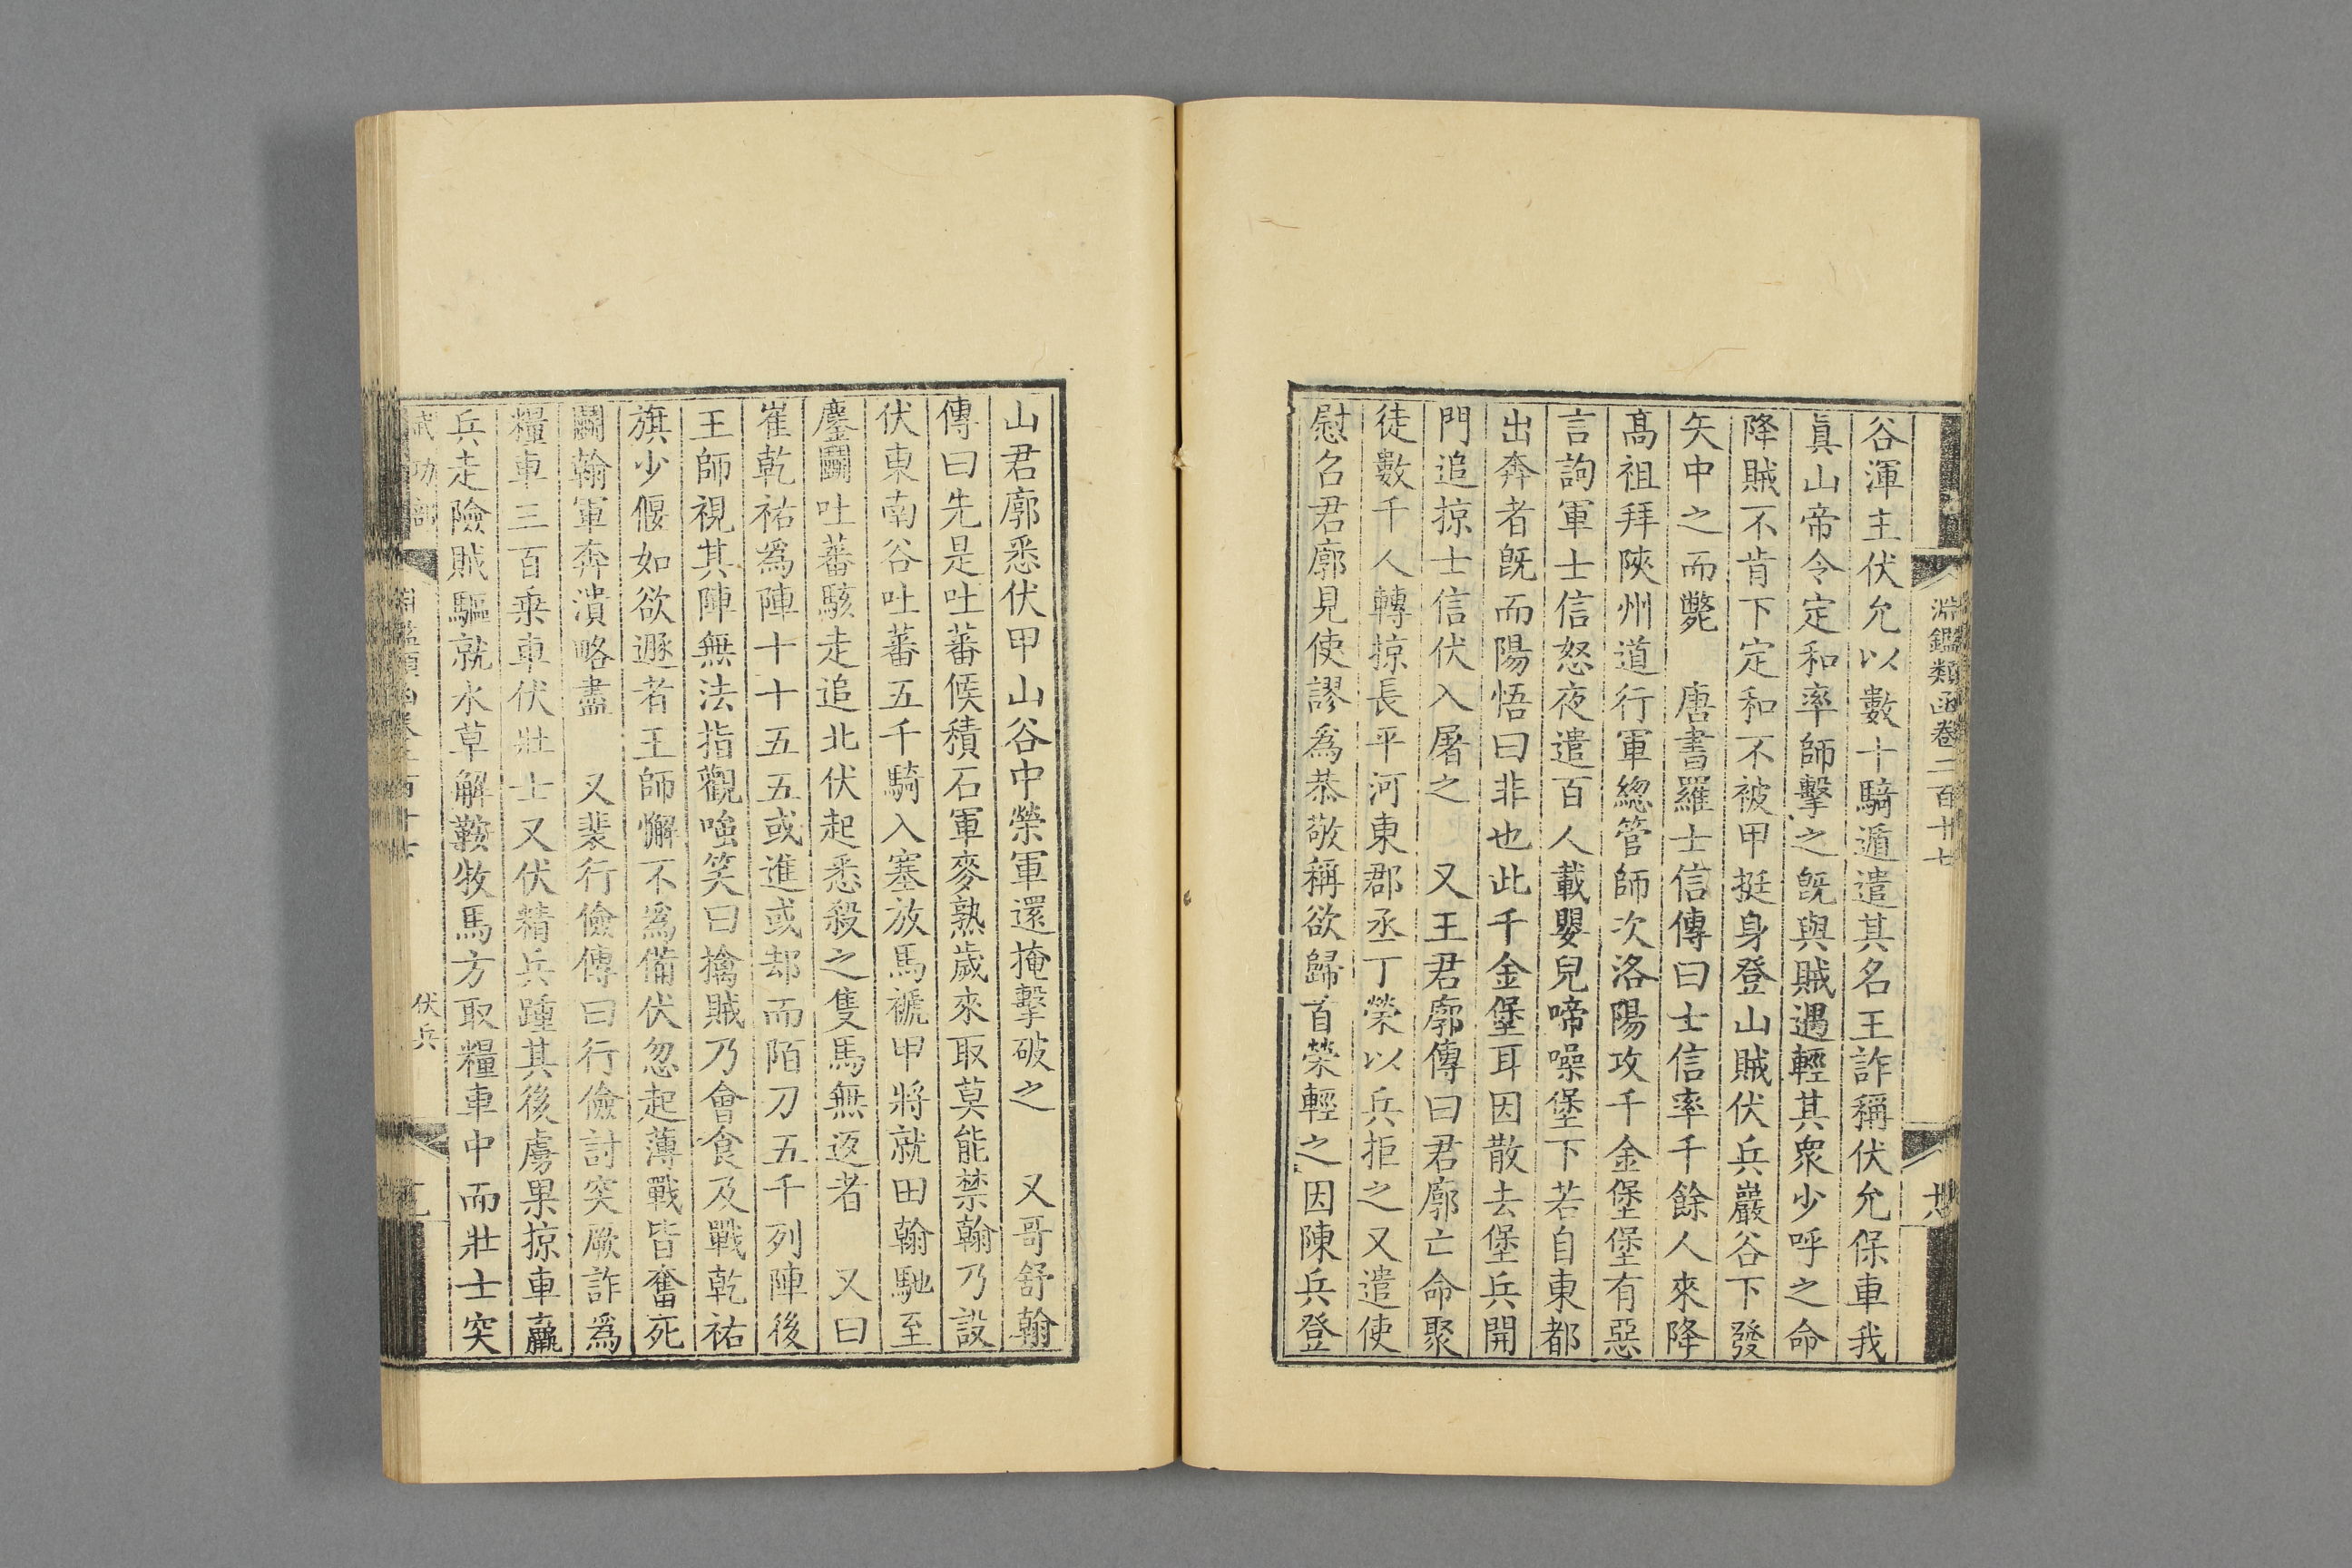 淵鑑類函卷二百十七
谷渾主伏允以數十騎遁遣其名王詐稱伏允保車我
眞山帝令定和率師擊之旣與賊遇輕其衆少呼之命
降賊不肯下定和不被甲挺身登山賊伏兵巖谷下發
矢中之而斃　唐書羅士信傳曰士信率千餘人來降
高祖拜陝州道行軍緫管師次洛陽攻千金堡堡有惡
言詢軍士信怒夜遣百人載嬰兒啼噪堡下若自東都
出奔者旣而陽悟曰非也此千金堡耳因散去堡兵開
門追掠士信伏入屠之　又王君廓傳曰君廓亡命聚
徒數千人轉掠長平河東郡丞丁榮以兵拒之又遣使
慰召君廓見使謬爲恭敬稱欲歸首榮輕之因陳兵登
山君廓悉伏甲山谷中榮軍還掩擊破之　又哥舒翰
傳曰先是吐蕃候積石軍麥熟歲來取莫能禁翰乃設
伏東南谷吐蕃五千騎入塞放馬褫甲將就田翰馳至
鏖鬭吐蕃駭走追北伏起悉殺之隻馬無返者　又曰
崔乾祐爲陣十十五五或進或却而陌刀五千列陣後
王師視其陣無法指觀嗤笑曰擒賊乃會食及戰乾祐
旗少偃如欲遯者王師懈不爲備伏忽起薄戰皆奮死
鬭翰軍奔潰略盡　又裴行儉傳曰行儉討突厥詐爲
糧車三百乘車伏壯士又伏精兵踵其後虜果掠車羸
兵走險賊驅就水草解鞍牧馬方取糧車中而壯士突
武功部
伏兵